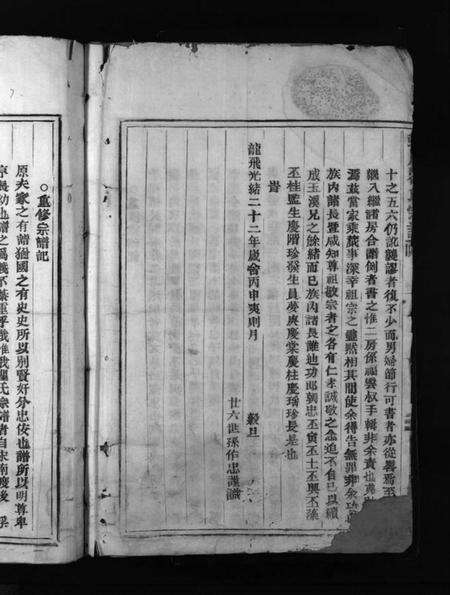 十之五六仍訛襲謬者復不少而男婦節行可書者亦從畧焉至
繼入繼諸房合譜倒者書之惟二房係
叔手輯非余責也
當家乘蕆事深幸祖宗之靈然相其間使余得告無罪非余功也
族內諸長暨咸知尊祖敬宗者之各有仁孝誠敬之念迫不自已以續
成玉溪兄之餘緒而已族內諸長難迪功郎朝忠丕賓丕士丕興丕藻
丕桂監生慶階珍發生員夢庚慶棠慶柱慶瑤珍長是也
旹
龍飛光緒二十二年歲會丙申夷則月
穀旦
廿六世孫作忠謹識
○重修宗譜記
原夫家之有譜猶國之有史史所以別賢奸分忠佞也譜所以明尊卑
序長幼也譜之爲義不綦重乎我惟我
氏宗譜者自宋南慶後